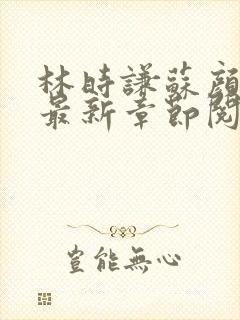 林時謙蘇顏
最新章節閱
豈能無心